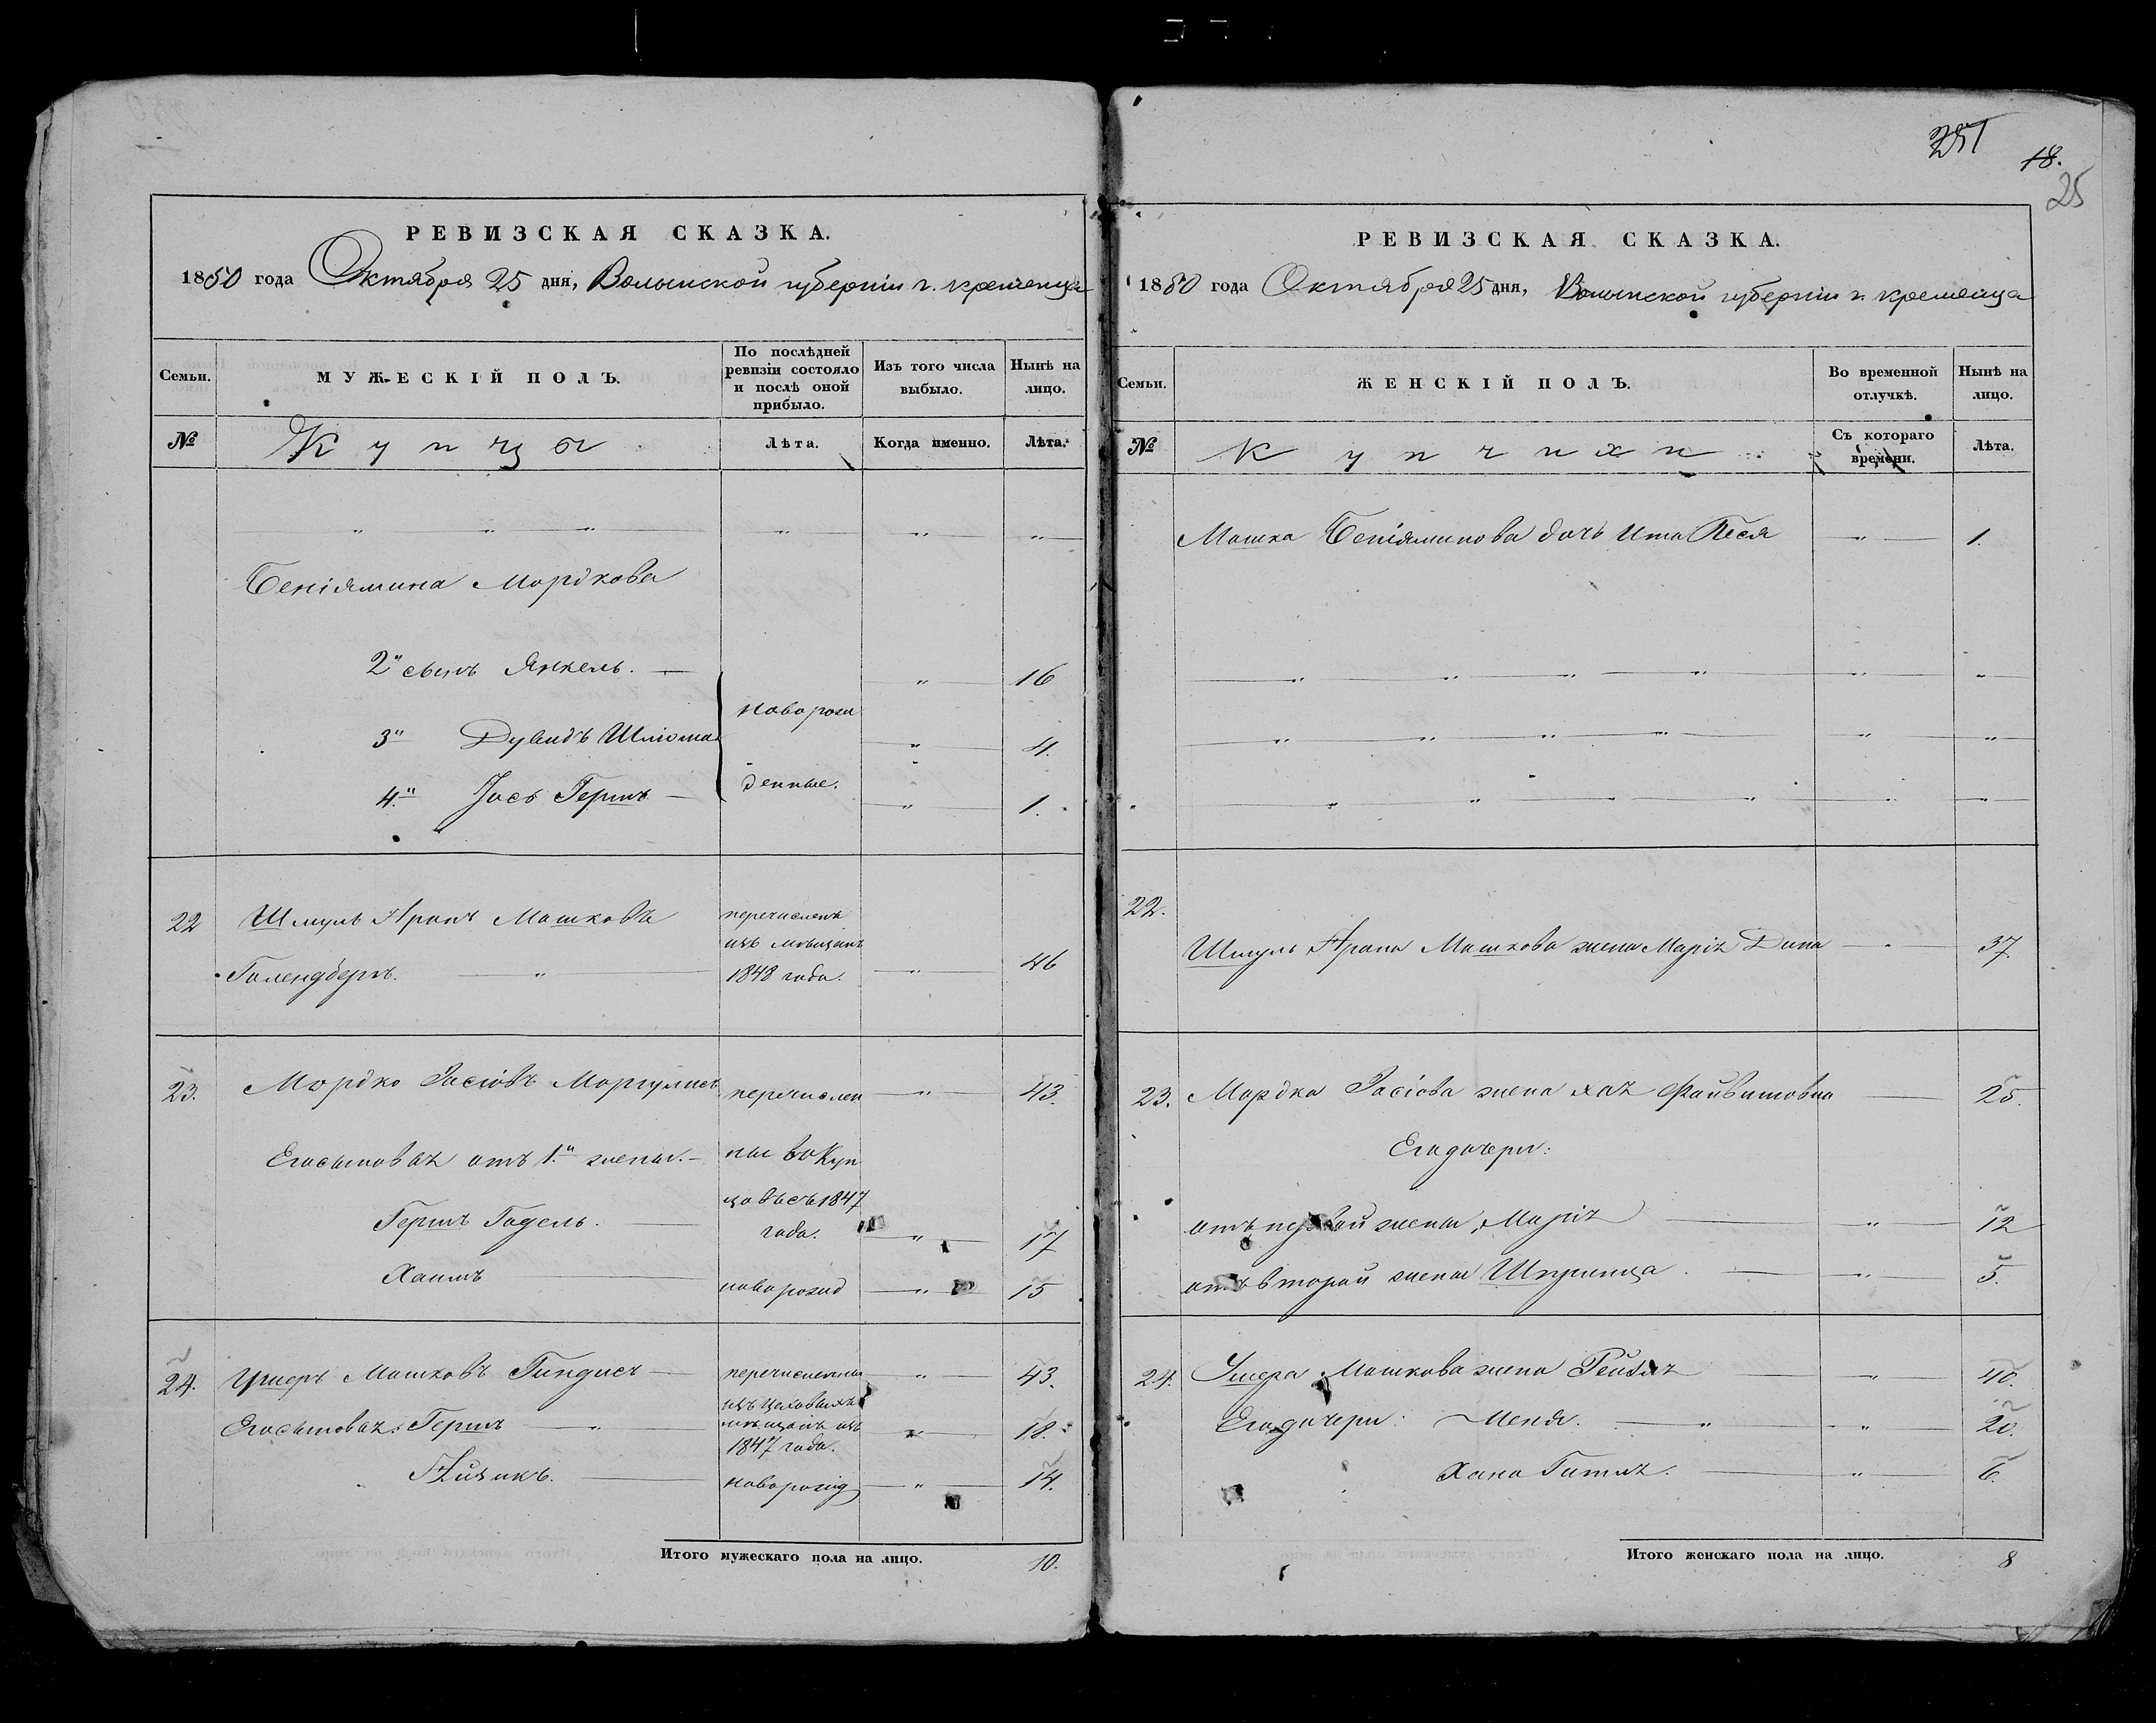 251
18.
25
РЕВИЗСКАЯ СКАЗКА.
1850 года Октября 25 дня, Волынской губерніи г. Кременца
Семьи.
МУЖЕСКІЙ ПОЛЪ.
По послѣдней
ревизіи состояло
и послѣ оной
прибыло.
Изъ того числа
выбыло.
Нынѣ на
лицо.
№
Купцы
Лѣта.
Когда именно.
Лѣта.
Беніямина Мордкова
2й сынъ Янкель. 16
3й Дувидъ Шлiома 4.
4й Іосъ Гершъ 1.
новорож
денные.
22 Шмуль Аронъ Машковъ
Галендберъ. 46
перечисленъ
изъ мѣщанъ
1848 года.
23. Мордко Іосіовъ Моргулисъ 43.
Его сыновья отъ 1й жены.
Гершъ Годель. 17
Хаимъ 15
перечислен
ны въ Куп
цовъ съ 1847
года.
новорожд
24. Ушеръ Машковъ Гиндисъ 43.
Его сыновья: Гершъ 18.
Айзикъ. 14.
перечислены
изъ цеховыхъ
мѣщанъ изъ
1847 года.
новорожд
Итого мужескаго пола на лицо. 10.
РЕВИЗСКАЯ СКАЗКА.
1850 года Октября 25 дня, Волынской губерніи г. Кременца
Семьи.
ЖЕНСКІЙ ПОЛЪ.
Во временной
отлучкѣ.
Нынѣ на
лицо.
№
Купчихи
Съ котораго
времени.
Лѣта.
Машка Беніяминова дочь Ита Песя 1.
22.
Шмуль Арона Машкова жена Марія Дина 37.
23. Мордка Іосіова жена Хая Файвишовна 25.
Его дочери:
отъ первой жены, Марія 12
отъ второй жены Шпринца. 5.
24. Ушера Машкова жена Рейзля 40.
Его дочери: Меня. 20.
Хана Гитля. 6.
Итого женскаго пола на лицо. 8